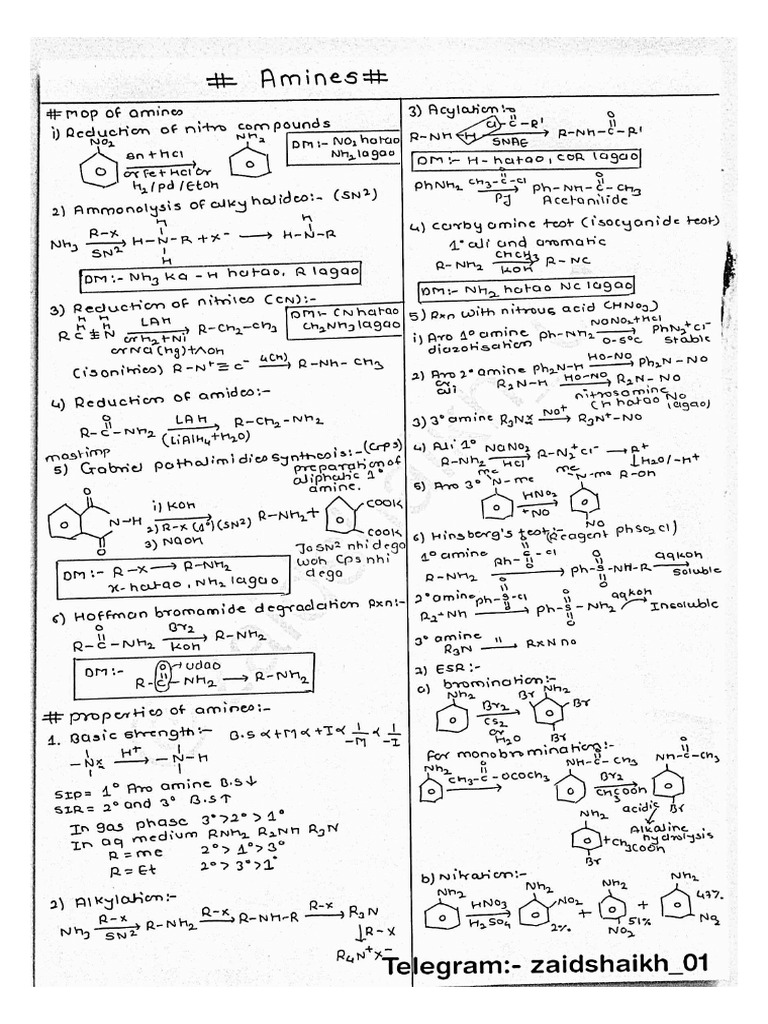 # Amines #
# MOP of amines
i) Reduction of nitro compounds
NO2
Sn+HCl
or Fe+HCl or
H2/Pd/EtOH
NH2
DM:- NO2 hatao
NH2 lagao
2) Ammonolysis of alkyl halides:- (SN2)
NH3 R-X SN2 H-N-R + X- → H-N-R
H
H
H
DM:- NH3 ka -H hatao, R lagao
3) Reduction of nitriles (CN):-
H H
R C≡N LAH R-CH2-CH3
or H2+Ni
or Na(Hg)+
DM:- CN hatao
CH2NH3 lagao
(isonitriles) R-N+≡C- 4(H) R-NH-CH3
4) Reduction of amides:-
O
R-C-NH2 LAH (LiAlH4+H2O) R-CH2-NH2
most imp
5) Gabriel pathalimidies synthesis:- (GPS)
preparation of
aliphatic 1°
amine.
O
N-H
O
i) KOH
2) R-X (1°) (SN2)
3) NaOH
R-NH2 +
COOK
COOK
Jo SN2 nhi dega
woh GPS nhi
dega
DM:- R-X → R-NH2
X-hatao, NH2 lagao
6) Hoffman bromamide degradation Rxn:-
O
R-C-NH2 Br2 KOH R-NH2
DM:- R-C-NH2 → R-NH2
O → udao
# properties of amines:-
1. Basic strength:- B.S ∝ +M ∝ +I ∝ 1/-M ∝ 1/-I
-N: H+ → -N-H
SIP = 1° Aro amine B.S↓
SIR = 2° and 3° B.S↑
In gas phase 3°>2°>1°
In aq medium RNH2 R2NH R3N
R = me 2°>1°>3°
R = Et 2°>3°>1°
2) Alkylation:-
NH3 R-X SN2 R-NH2 R-X R-NH-R R-X R3N
↓R-X
R4N+X-
3) Acylation:-
O
R-NH H Cl-C-R' SNAE R-NH-C-R'
O
DM:- H-hatao, COR lagao
PhNH2 CH3-C-Cl Py Ph-NH-C-CH3
O
O
Acetanilide
4) Carbyamine test (isocyanide test)
1° ali and aromatic
R-NH2 CHCH3 KOH R-NC
DM:- NH2 hatao NC lagao
5) Rxn with nitrous acid (HNO2)
i) Aro 1° amine Ph-NH2 NaNO2+HCl PhN2+Cl-
diazotisation 0-5°C stable
2) Aro 2° amine Ph2N-H HO-NO Ph2N-NO
or
ali R2N-H HO-NO R2N-NO
nitrosamine
(H hatao NO
lagao)
3) 3° amine R3N: NO+ R3N+-NO
4) Ali 1° NaNO2
R-NH2 HCl R-N2+Cl- → R+
↓H2O/-H+
R-OH
5) Aro 3° me
N-me
HNO2
+NO
me
N-me
NO
6) Hinsberg's test:- (Reagent PhSO2Cl)
1° amine
O
R-NH2 Ph-S-Cl Ph-S-NH-R aqKOH soluble
O
O
2° amine
R2+NH Ph-S-Cl Ph-S-NH2 aqKOH Insoluble
O
O
3° amine
R3N " Rxn no
7) ESR:-
a) bromination:-
NH2
Br2
CS2
or
H2O
Br NH2 Br
Br
for monobromination:-
NH2
O
CH3-C-OCOCH3
O
NH-C-CH3
Br2
CH3COOH
O
NH-C-CH3
Br
acidic
Alkaline
hydrolysis
NH2
Br
+CH3COOH
b) Nitration:-
NH2
HNO3
H2SO4
NH2
NO2
2%
+
NH2
NO2
51%
+
NH2
47%
NO2
Telegram:- zaidshaikh_01